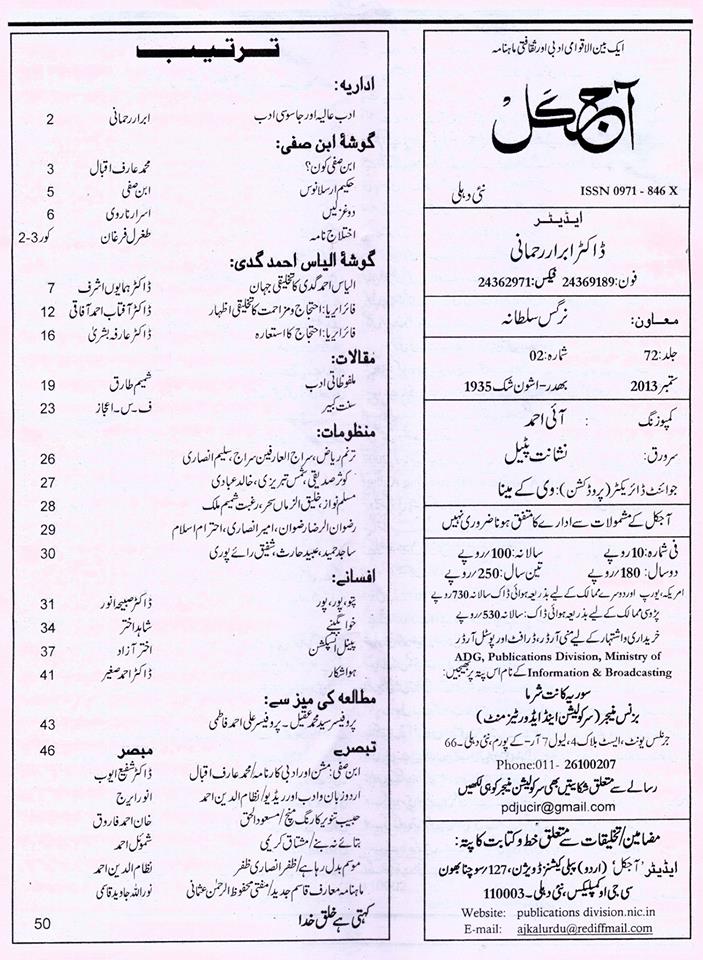 ایک بین الاقوامی ادبی اور ثقافتی ماہنامہ
آجکل
نئی دہلی ISSN 0971 - 846 X
ایڈیٹر
ڈاکٹر ابرار رحمانی
فون: 24369189 فیکس: 24362971
معاون: نرگس سلطانہ
جلد: 72 شمارہ: 02
ستمبر 2013 بھدر-اشون شک 1935
کمپوزنگ : آئی احمد
سرورق: نشانت پٹیل
جوائنٹ ڈائریکٹر (پروڈکشن): وی کے مینا
آجکل کے مشمولات سے ادارے کا متفق ہونا ضروری نہیں
فی شمارہ: 10 روپے سالانہ: 100/روپے
دو سال: 180/روپے تین سال: 250/روپے
امریکہ، یورپ اور دوسرے ممالک کے لیے بذریعہ ہوائی ڈاک سالانہ 730 روپے
پڑوسی ممالک کے لیے بذریعہ ہوائی ڈاک: سالانہ 530/روپے
خریداری و اشتہار کے لیے منی آرڈر، ڈرافٹ اور پوسٹل آرڈر
ADG, Publications Division, Ministry of
Information & Broadcasting کے نام اس پتہ پر بھیجیں:
سوریہ کانت شرما
بزنس منیجر (سرکولیشن اینڈ ایڈورٹیزمنٹ)
جرنلس یونٹ، ایسٹ بلاک 4، لیول 7 آر-کے پورم، نئی دہلی۔66
Phone:011- 26100207
رسالے سے متعلق شکایتیں بھی سرکولیشن منیجر کو ہی لکھیں
pdjucir@gmail.com
مضامین/تخلیقات سے متعلق خط و کتابت کا پتہ:
ایڈیٹر 'آجکل' (اردو) پبلی کیشنز ڈویژن، 127/سوچنا بھون
سی جی او کمپلیکس، نئی دہلی۔110003
Website: publications division.nic.in
E-mail: ajkalurdu@rediffmail.com
ترتیب
اداریہ:
ادب عالیہ اور جاسوسی ادب ابرار رحمانی 2
گوشۂ ابن صفی:
ابن صفی کون؟ محمد عارف اقبال 3
حکیم ارسلانوس ابن صفی 5
دو غزلیں اسرار ناروی 6
اختلاج نامہ طغرل فرغان کور 3-2
گوشۂ الیاس احمد گدی:
الیاس احمد گدی کا تخلیقی جہان ڈاکٹر ہمایوں اشرف 7
فائر ایریا: احتجاج و مزاحمت کا تخلیقی اظہار ڈاکٹر آفتاب احمد آفاقی 12
فائر ایریا: احتجاج کا استعارہ ڈاکٹر عارفہ بشریٰ 16
مقالات:
ملفوظاتی ادب شمیم طارق 19
سنت کبیر ف۔س۔اعجاز 23
منظومات:
ترنم ریاض، سراج العارفین سراج، سلیم انصاری 26
کوثر صدیقی، شمس تبریزی، خالد عبادی 27
مسلم نواز، خلیق الزماں سحر، رغبت شمیم ملک 28
رضوان الرضا رضوان، امیر انصاری، احترام اسلام 29
ساجد حمید، عبید حارث، شفیق رائے پوری 30
افسانے:
پتو، پور، پور ڈاکٹر صبیحہ انور 31
خوابگینے شاہد اختر 34
پینل انسپکشن اختر آزاد 37
ہوا شکار ڈاکٹر احمد صغیر 41
مطالعہ کی میز سے:
پروفیسر سید محمد عقیل۔ پروفیسر علی احمد فاطمی 43
تبصرے مبصر 46
ابن صفی: مشن اور ادبی کارنامہ/محمد عارف اقبال ڈاکٹر شفیع ایوب
اردو زبان و ادب اور ریڈیو/نظام الدین احمد انور ایرج
حبیب تنویر کا رنگ منچ/مسعود الحق خان احمد فاروق
بتائے نہ بنے/مشتاق کریمی شموئل احمد
موسم بدل رہا ہے/ظفر انصاری ظفر نظام الدین احمد
ماہنامہ معارف قاسم جدید/مفتی محفوظ الرحمٰن عثمانی نور اللہ جاوید قاسمی
کہتی ہے خلق خدا 50